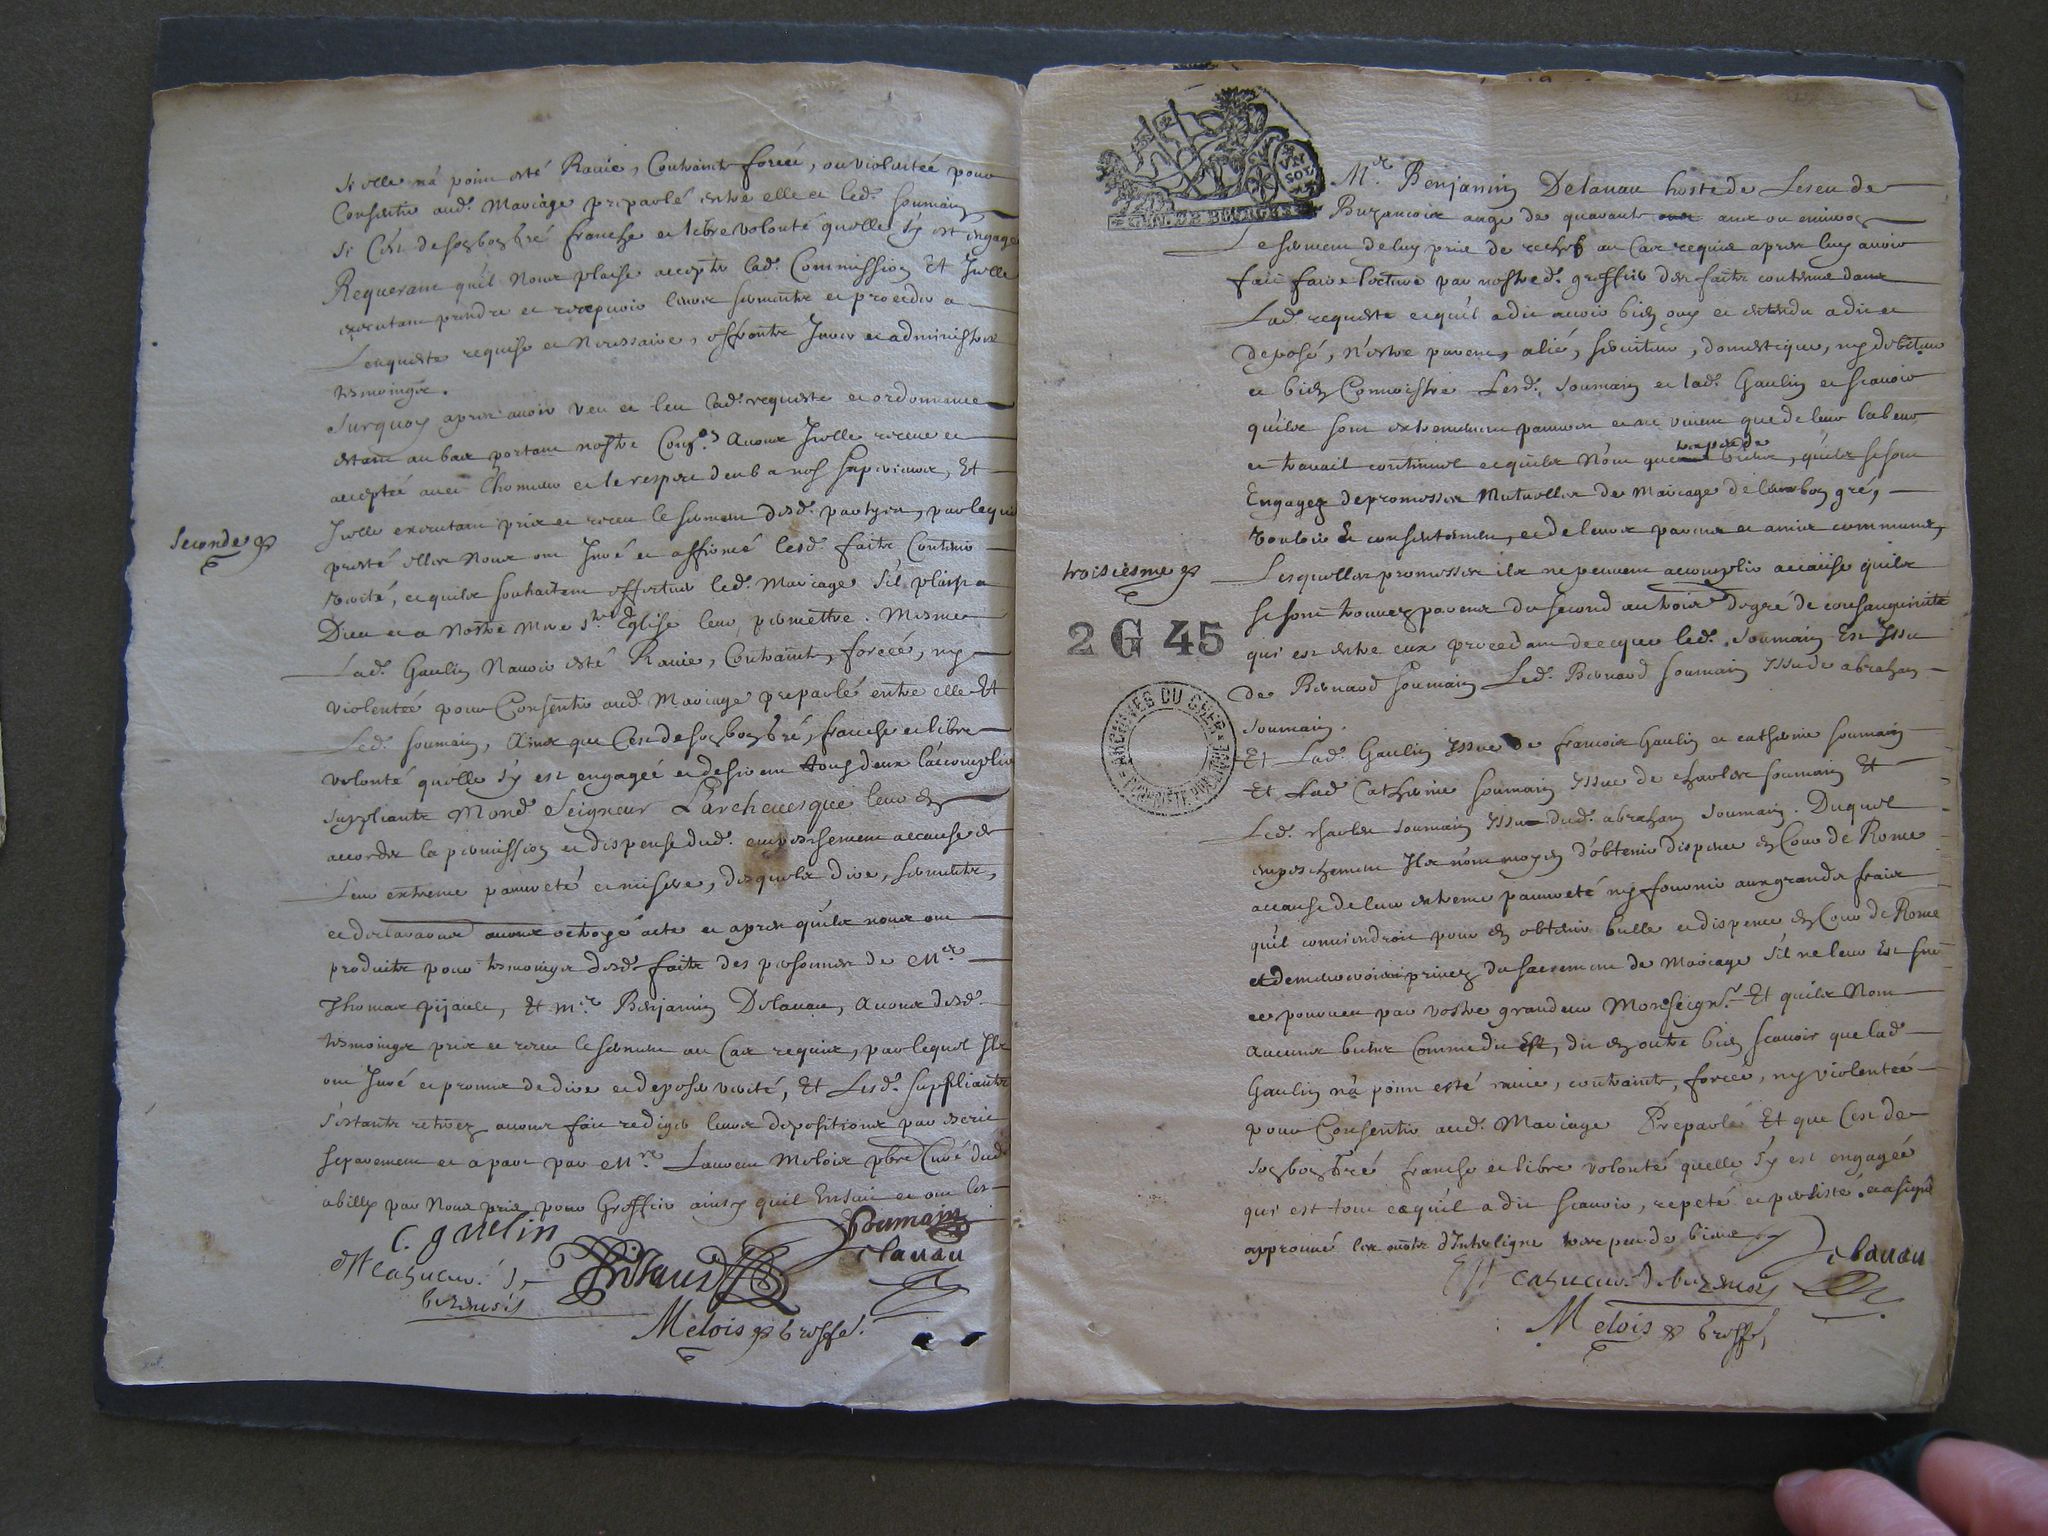 si elle n'a point esté Ravie, Contrainte forcée, ou violentée pour
Consentir aud. Mariage preparlé entre elle et led. Soumain
si C'est de son bon gré franche et libre volonté quelle s'y est engagé
Requerant qu'il Nous plaise accepter lad. Commission Et Icelle
executant prendre et recepvoir leurs serments et proceder a
Lenqueste requise et Necessaire, offrants Jurer et administrer
tesmoings.
Surquoy apres avoir veu et leu lad. requeste et ordonnance
estant au bas portant nostre Com.on avons Icelle receue et
acceptée avec l'honneur et le respect deub a nos superieurs, Et
Seconde
Icelle executant pris et receu le serment desd. partyes, par lequel
presté elles Nous ont Juré et affirmé lesd. faits Contenir
verité, et quils souhaitent effectuer led. Mariage s'il plaist a
Dieu et a Nostre Mere ste Eglise leur permettre. Mesme
Lad. Gaulin N'avoir esté Ravie, Contrainte, forcée, ny
violentée pour Consentir aud. Mariage preparlé entre elle Et
Led. Soumain, Ains que C'est de son bon gré, franche et libre
volonté qu'elle s'y est engagée et desirent tous deux l'accomplir
suppliants Mond. Seigneur L'archevesque leur en
accorder la permission et dispense dud. empeschement a cause de
Leur extreme pauvreté et misere, desquels dire, serments,
et declarations avons octroyé acte et apres qu'ils nous ont
produits pour tesmoings desd. faits des personnes de Mre
Thomas pijault, Et Mre Benjamin Delavau, Avons desd.
tesmoings pris et receu le serment au Cas requis, par lequel Ils
ont Juré et promis de dire et deposer verité, Et Lesd. suppliants
s'estants retirez avons fait rediger leurs depositions par escrit
separement et a part par Mre Laurent Melois pbre Curé dud.
abilly par Nous pris pour Greffier ainsy quil Ensuit et ont les
C. gaulin
Soumain
delavau
de buzançois
Melois greffe.
UN SOL
Mre Benjamin Delavau hoste de Lescu de
Buzancois aagé de quarante ans ou environ
Le serment de luy pris de rechef au Cas requis apres luy avoir
fait faire lecture par nostred. greffier des faits contenus dans
Lad. requeste et qu'il a dit avoir bien ouy et entendu a dit et
deposé, N'estre parent, alié, serviteur, domestique, ny debiteur
et bien Connoistre Lesd. Soumain et lad. Gaulin et scavoir
quils sont extremement pauvres et ne vivent que de leur labeur
et travail continuel et quils N'ont que tres peu de biens, quils se sont
Engagez de promesses Mutuelles de Mariage de leur bon gré,
vouloir Et consentement, et de leurs parens et amis communs,
troisiesme
Lesquelles promesses ils ne peuvent accomplir a cause quils
se sont trouvez parens du second au trois degré de consanguinité
2 G 45
qui est entre eux procedant de ce que led. Soumain Est Issu
de Bernard Soumain Led. Bernard Soumain Issu de abraham
Soumain.
ARCHIVES DU CHER
Et Lad. Gaulin Issue de francois Gaulin et catherine Soumain
Et Lad. Catherine Soumain Issue de charles Soumain Et
Led. charles Soumain Issu dud. abraham Soumain. Duquel
empeschement Ils n'ont moyen d'obtenir dispense en Cour de Rome
a cause de leur extreme pauvreté ny fournir aux grands frais
qu'il conviendroit pour en obtenir bulle et dispence en Cour de Rome
et demeureroient privez du sacrement de Mariage s'il ne leur Est sur
ce pourveu par vostre grandeur Monseignr. Et quils Nont
Aucuns biens Comme dit Est, dit en outre bien scavoir que lad.
Gaulin n'a point esté ravie, contrainte, forcée, ny violentée
pour Consentir aud. Mariage Preparlé Et que C'est de
son bon gré franche et libre volonté quelle s'y est engagée
qui est tout ce qu'il a dit scavoir, repeté et persisté. et a signé
approuvé les mots d'Interligne tres peu de biens
Delavau
de buzançois
Melois greffe